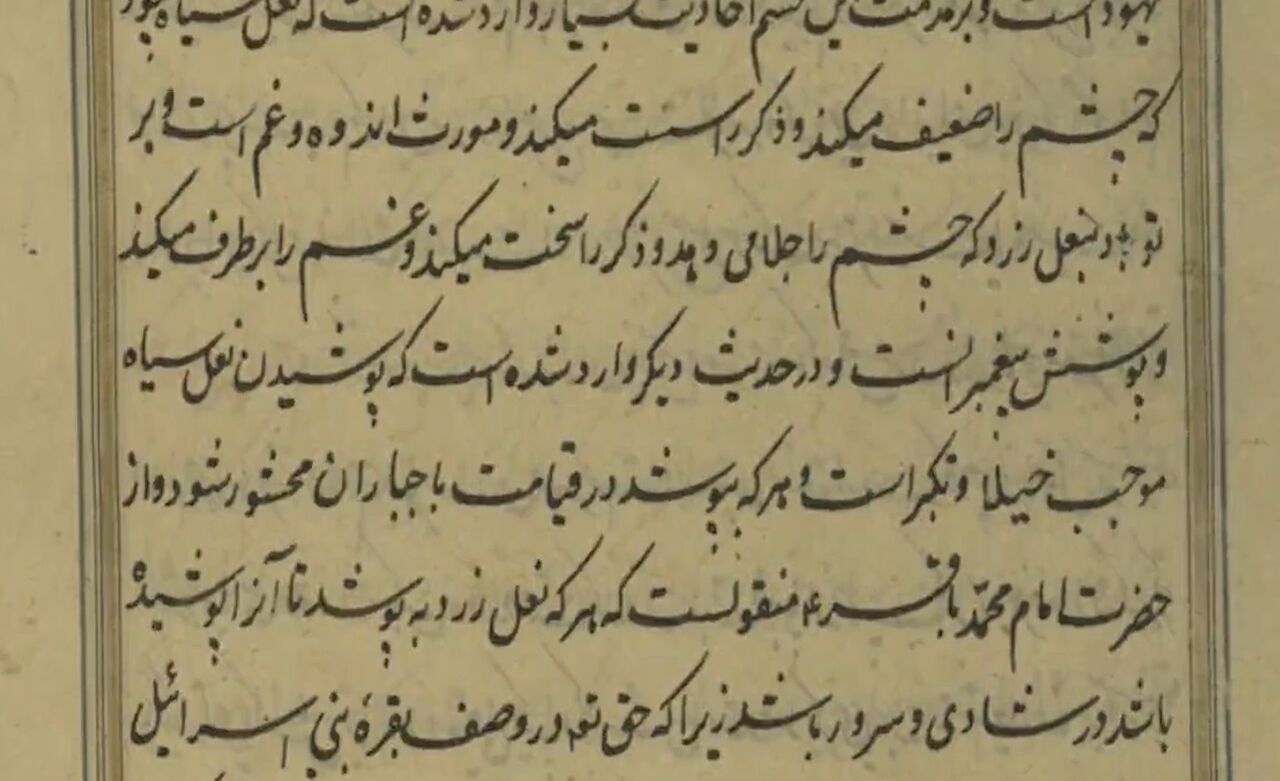 یهود است و بر مذمت این قسم احادیث بسیار وارد شده است که نعل سیاه مپوش
که چشم را ضعیف میکند و ذکر را سست میکند و مورث اندوه و غم است و بر
تو باد بنعل زرد که چشم را جلا می دهد و ذکر را سخت میکند و غم را برطرف میکند
و پوشش پیغمبرانست و در حدیث دیگر وارد شده است که پوشیدن نعل سیاه
موجب خیلا و تکبر است و هر که بپوشد در قیامت با جباران محشور شود و از
حضرت امام محمد باقر ع منقولست که هر که نعل زرد به پوشد تا آنرا پوشیده
باشد در شادی و سرور باشد زیرا که حق تع در وصف بقرهٔ بنی اسرائیل